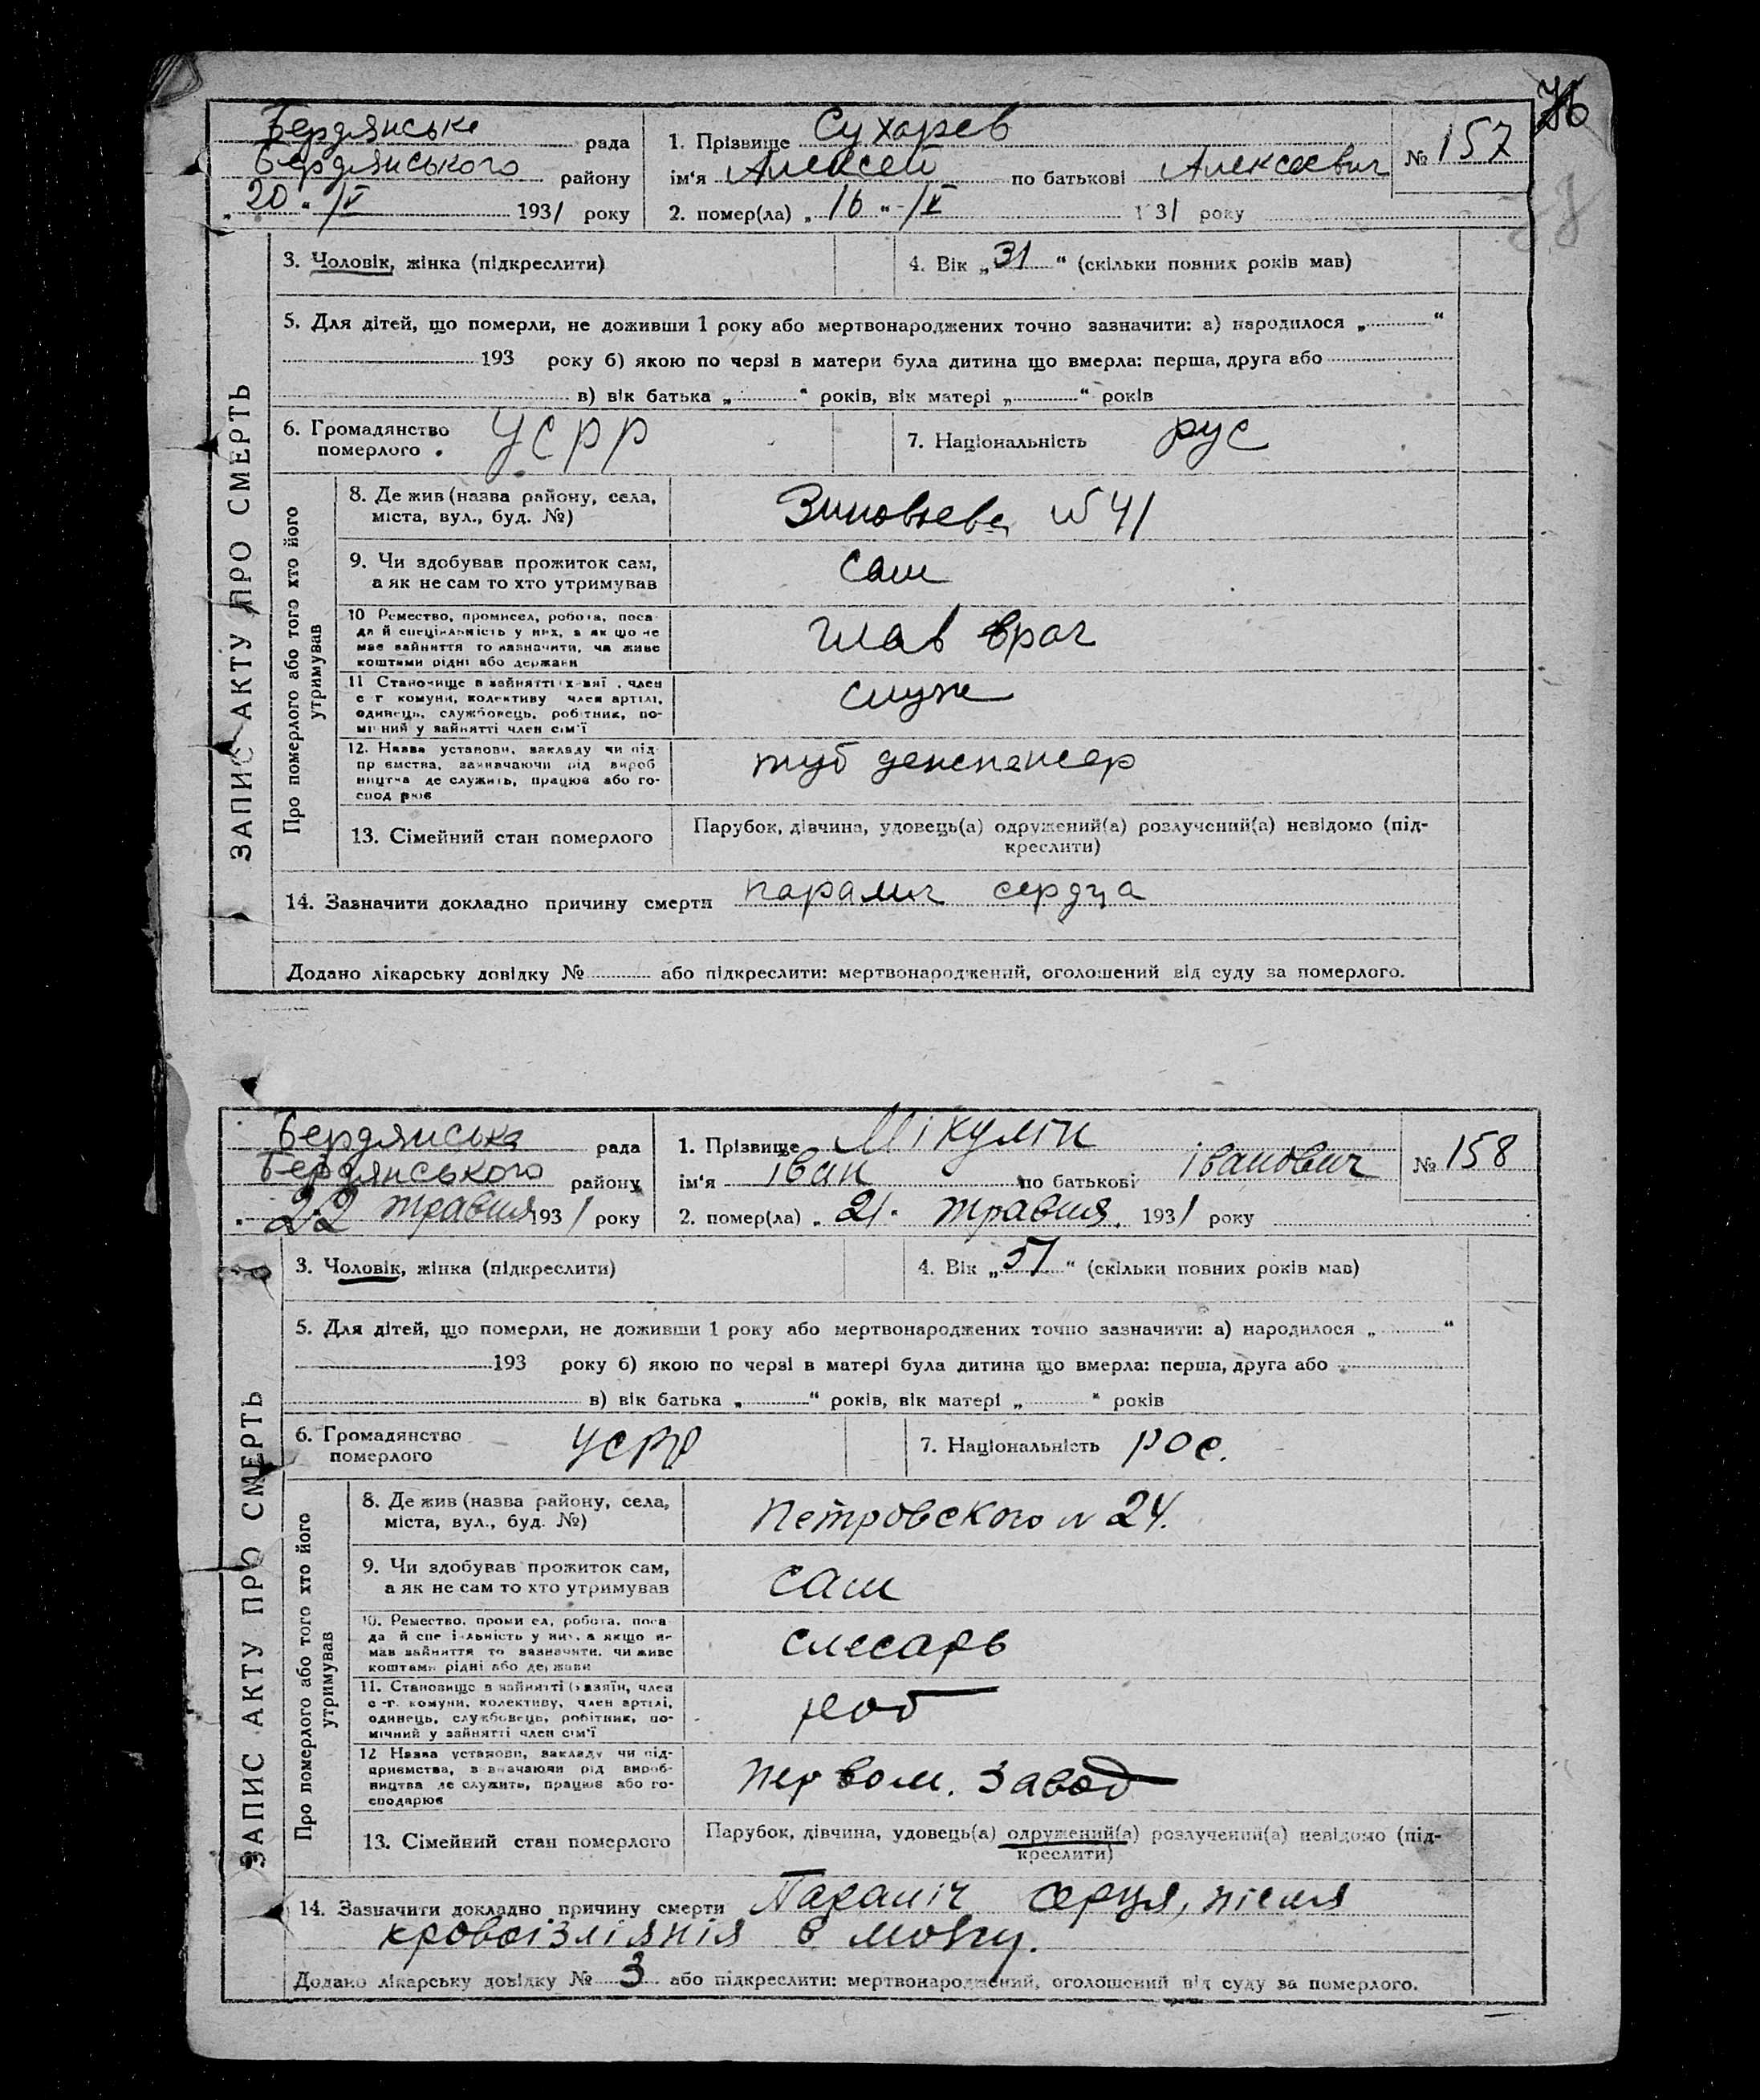 Бердянська рада
Бердянського району
„ 20 “ /V 1931 року
1. Прізвище Сухарев
ім'я Алексей по батькові Алексеевич
2. помер(ла) „ 16 “ /V 31 року
№ 157
ЗАПИС АКТУ ПРО СМЕРТЬ
3. Чоловік, жінка (підкреслити)
4. Вік „ 31 “ (скільки повних років мав)
5. Для дітей, що померли, не доживши 1 року або мертвонароджених точно зазначити: а) народилося „ “
193 року б) якою по черзі в матери була дитина що вмерла: перша, друга або
в) вік батька „ “ років, вік матері „ “ років
6. Громадянство
померлого УСРР
7. Національність рус
Про померлого або того хто його
утримував
8. Де жив (назва району, села,
міста, вул., буд. №)
Зиновьева №41
9. Чи здобував прожиток сам,
а як не сам то хто утримував
сам
10 Ремество, промисел, робота, поса-
да й спеціяльність у них, а як що не
має зайняття то зазначити, чи живе
коштами рідні або держави
глав врач
11 Становище в зайнятті х-зяї , член
с г комуни, колективу член артілі,
одинець, службовець, робітник, по-
мі ний у зайнятті член сім'ї
служ
12. Назва установи, закладу чи під-
пр ємства, зазначаючи рід вироб
ництва де служить, працює або го-
спод рює
туб диспенсер
13. Сімейний стан померлого
Парубок, дівчина, удовець(а) одружений(а) розлучений(а) невідомо (під-
креслити)
14. Зазначити докладно причину смерти паралич сердца
Додано лікарську довідку № або підкреслити: мертвонароджений, оголошений від суду за померлого.
Бердянська рада
Бердянського району
„ 22 травня 1931 року
1. Прізвище Мікулін
ім'я іван по батькові іванович
2. помер(ла) „ 21. травня. 1931 року
№ 158
ЗАПИС АКТУ ПРО СМЕРТЬ
3. Чоловік, жінка (підкреслити)
4. Вік „ 51 “ (скільки повних років мав)
5. Для дітей, що померли, не доживши 1 року або мертвонароджених точно зазначити: а) народилося „ “
193 року б) якою по черзі в матері була дитина що вмерла: перша, друга або
в) вік батька „ “ років, вік матері „ “ років
6. Громадянство
померлого УСРР
7. Національність рос.
Про померлого або того хто його
утримував
8. Де жив (назва району, села,
міста, вул., буд. №)
Петровского № 24.
9. Чи здобував прожиток сам,
а як не сам то хто утримував
сам
10. Ремество, проми ел, робота, поса
да й спе і-льність у них, а якщо н-
мав зайняття то зазначити, чи живе
коштами рідні або держави
слесарь
11. Становище в зайнятті (хазяїн, член
с-г. комуни, колективу, член артілі,
одинець, службовець, робітник, по-
мічний у зайнятті член сім'ї
роб
12 Назва установи, закладу чи під-
приємства, зазначаючи рід вироб-
ництва де служить, працює або го-
сподарює
первом. завод
13. Сімейний стан померлого
Парубок, дівчина, удовець(а) одружений(а) розлучений(а) невідомо (під-
креслити)
14. Зазначити докладно причину смерти Параліч серця, після
кровоізліянія в мозку.
Додано лікарську довідку № 3 або підкреслити: мертвонароджений, оголошений від суду за померлого.